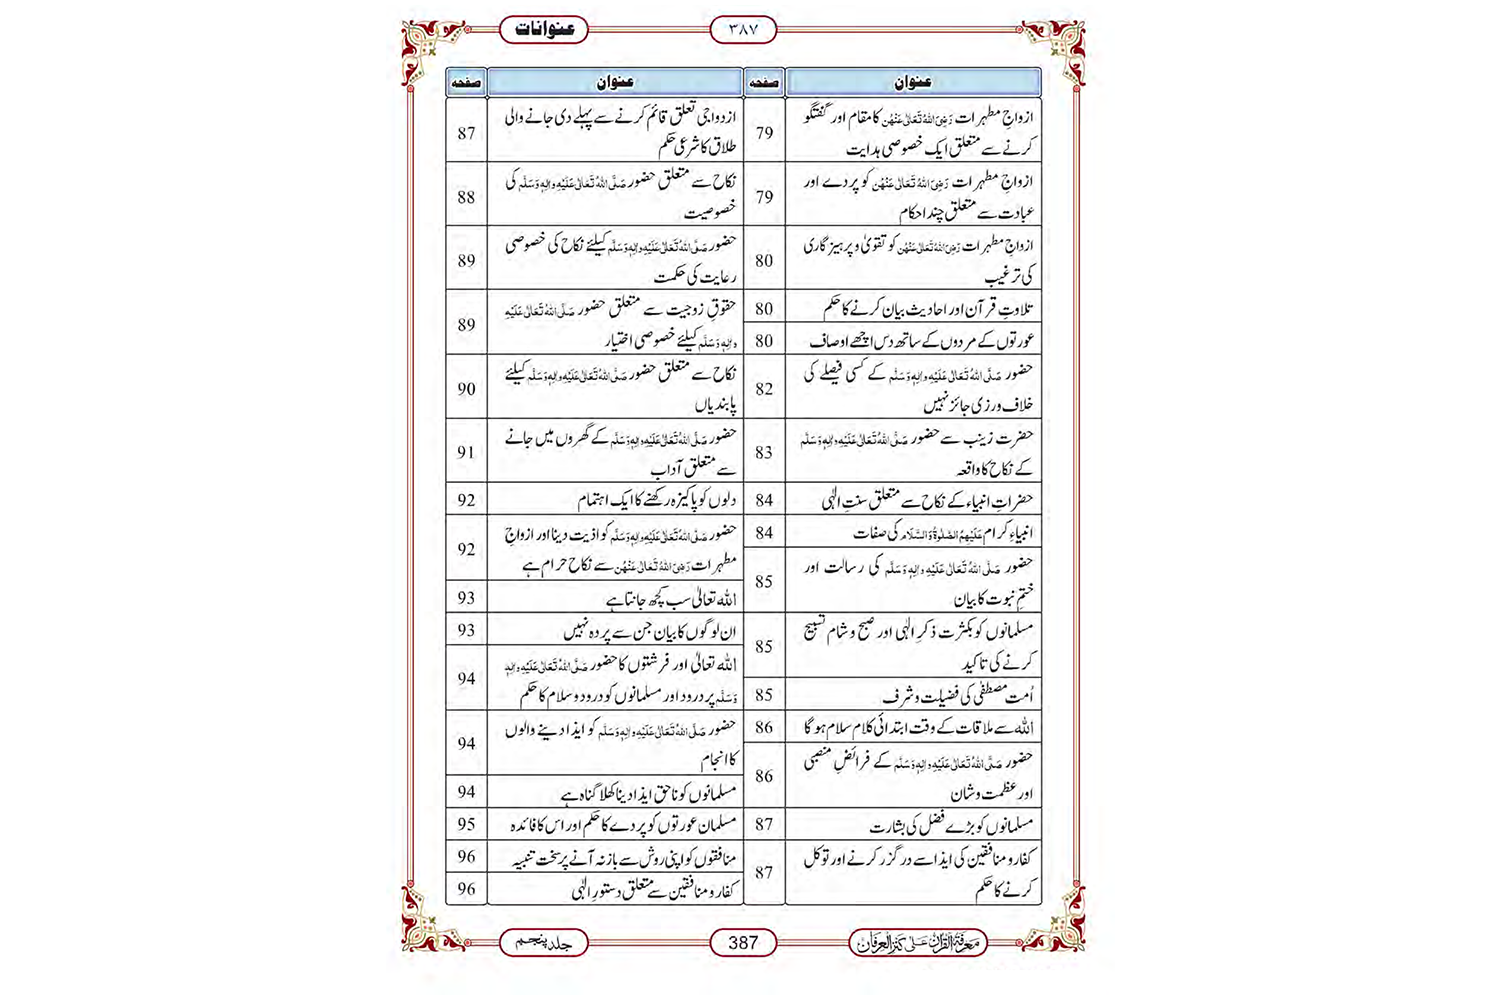 عنوانات
۳۸۷
عنوان
صفحہ
ازواجِ مطہرات رَضِیَ اللہُ تَعَالٰی عَنْہُن کا مقام اور گفتگو
کرنے سے متعلق ایک خصوصی ہدایت
79
ازواجِ مطہرات رَضِیَ اللہُ تَعَالٰی عَنْہُن کو پردے اور
عبادت سے متعلق چند احکام
79
ازواجِ مطہرات رَضِیَ اللہُ تَعَالٰی عَنْہُن کو تقویٰ و پرہیزگاری
کی ترغیب
80
تلاوتِ قرآن اور احادیث بیان کرنے کا حکم
80
عورتوں کے مردوں کے ساتھ دس اچھے اوصاف
80
حضور صَلَّی اللہُ تَعَالٰی عَلَیْہِ وَاٰلِہٖ وَسَلَّم کے کسی فیصلے کی
خلاف ورزی جائز نہیں
82
حضرت زینب سے حضور صَلَّی اللہُ تَعَالٰی عَلَیْہِ وَاٰلِہٖ وَسَلَّم
کے نکاح کا واقعہ
83
حضراتِ انبیاء کے نکاح سے متعلق سنتِ الٰہی
84
انبیاءِ کرام عَلَیْہِمُ الصَّلٰوۃُ وَالسَّلَام کی صفات
84
حضور صَلَّی اللہُ تَعَالٰی عَلَیْہِ وَاٰلِہٖ وَسَلَّم کی رسالت اور
ختمِ نبوت کا بیان
85
مسلمانوں کو بکثرت ذکرِ الٰہی اور صبح و شام تسبیح
کرنے کی تاکید
85
اُمت مصطفٰی کی فضیلت و شرف
85
اللہ سے ملاقات کے وقت ابتدائی کلام سلام ہو گا
86
حضور صَلَّی اللہُ تَعَالٰی عَلَیْہِ وَاٰلِہٖ وَسَلَّم کے فرائضِ منصبی
اور عظمت و شان
86
مسلمانوں کو بڑے فضل کی بشارت
87
کفار و منافقین کی ایذا سے درگزر کرنے اور توکل
کرنے کا حکم
87
عنوان
صفحہ
ازدواجی تعلق قائم کرنے سے پہلے دی جانے والی
طلاق کا شرعی حکم
87
نکاح سے متعلق حضور صَلَّی اللہُ تَعَالٰی عَلَیْہِ وَاٰلِہٖ وَسَلَّم کی
خصوصیت
88
حضور صَلَّی اللہُ تَعَالٰی عَلَیْہِ وَاٰلِہٖ وَسَلَّم کیلئے نکاح کی خصوصی
رعایت کی حکمت
89
حقوقِ زوجیت سے متعلق حضور صَلَّی اللہُ تَعَالٰی عَلَیْہِ
وَاٰلِہٖ وَسَلَّم کیلئے خصوصی اختیار
89
نکاح سے متعلق حضور صَلَّی اللہُ تَعَالٰی عَلَیْہِ وَاٰلِہٖ وَسَلَّم کیلئے
پابندیاں
90
حضور صَلَّی اللہُ تَعَالٰی عَلَیْہِ وَاٰلِہٖ وَسَلَّم کے گھروں میں جانے
سے متعلق آداب
91
دلوں کو پاکیزہ رکھنے کا ایک اہتمام
92
حضور صَلَّی اللہُ تَعَالٰی عَلَیْہِ وَاٰلِہٖ وَسَلَّم کو اذیت دینا اور ازواجِ
مطہرات رَضِیَ اللہُ تَعَالٰی عَنْہُن سے نکاح حرام ہے
92
اللہ تعالٰی سب کچھ جانتا ہے
93
ان لوگوں کا بیان جن سے پردہ نہیں
93
اللہ تعالٰی اور فرشتوں کا حضور صَلَّی اللہُ تَعَالٰی عَلَیْہِ وَاٰلِہٖ
وَسَلَّم پر درود اور مسلمانوں کو درود و سلام کا حکم
94
حضور صَلَّی اللہُ تَعَالٰی عَلَیْہِ وَاٰلِہٖ وَسَلَّم کو ایذا دینے والوں
کا انجام
94
مسلمانوں کو ناحق ایذا دینا کھلا گناہ ہے
94
مسلمان عورتوں کو پردے کا حکم اور اس کا فائدہ
95
منافقوں کو اپنی روش سے باز نہ آنے پر سخت تنبیہ
96
کفار و منافقین سے متعلق دستورِ الٰہی
96
معرفۃ القرآن علی کنز العرفان
387
جلد پنجم